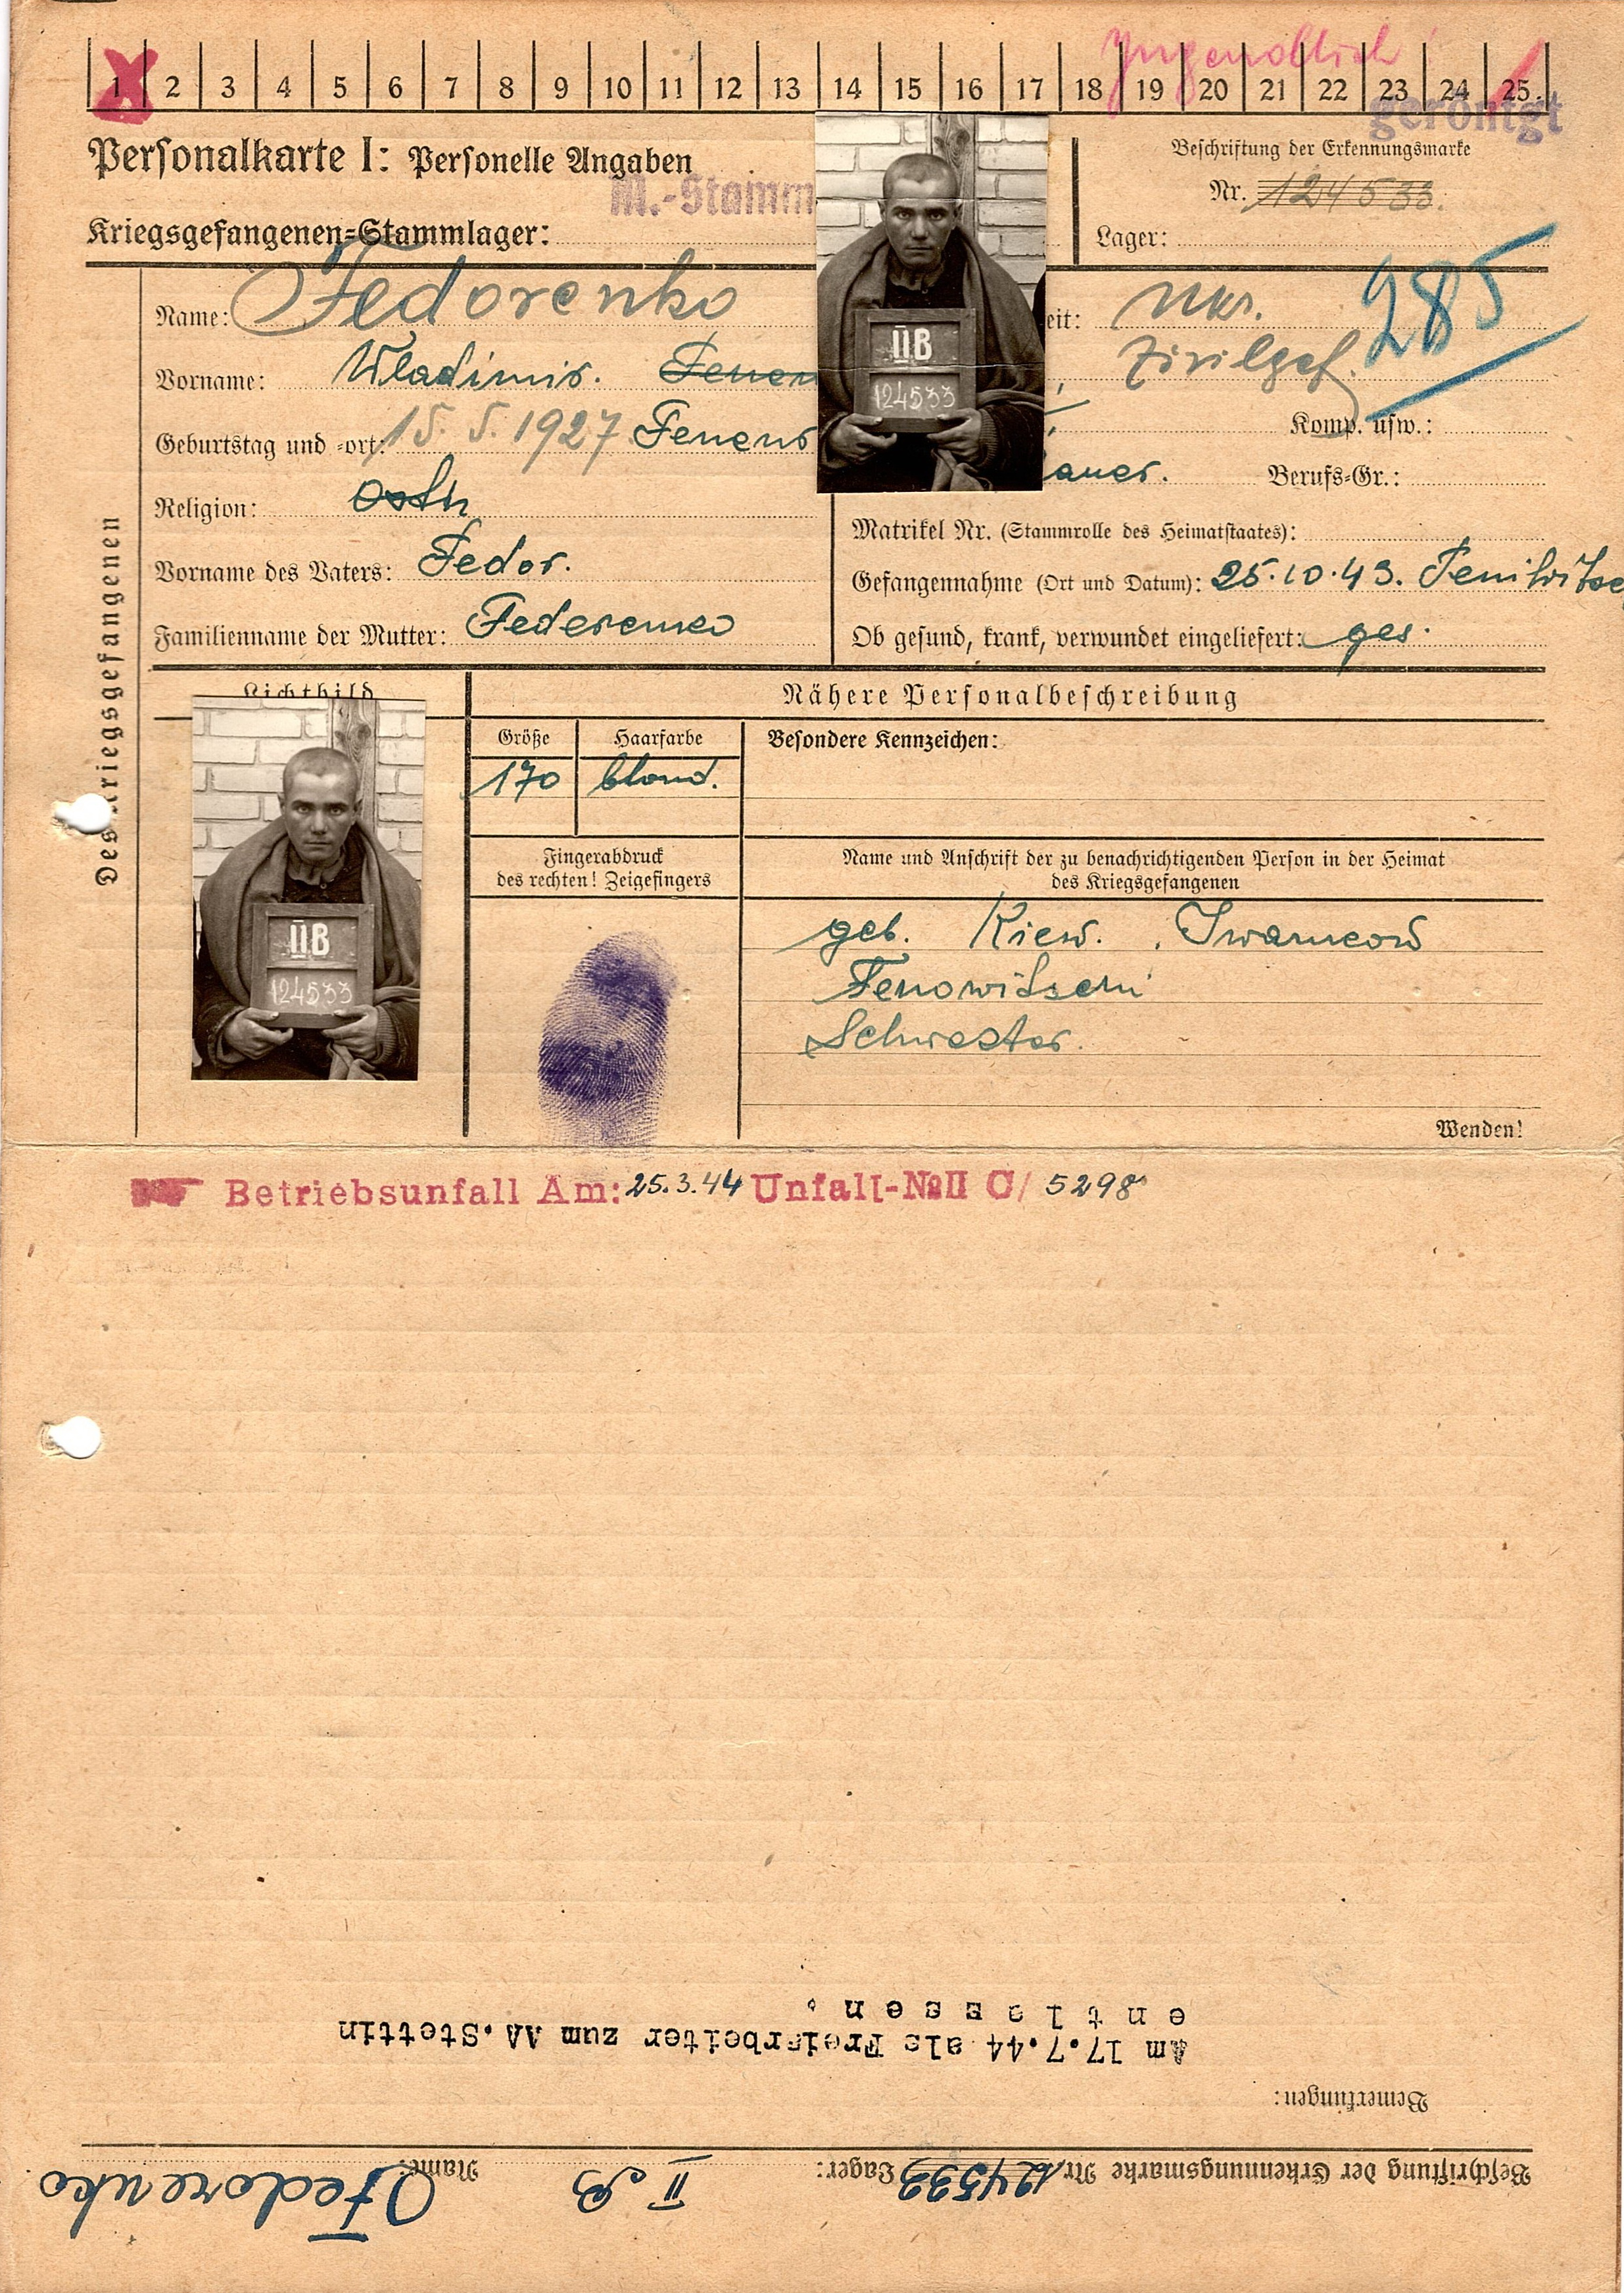 Jugendlich!
1 2 3 4 5 6 7 8 9 10 11 12 13 14 15 16 17 18 19 20 21 22 23 24 25.
geröntgt
Personalkarte I: Personelle Angaben
M.-Stamm
Kriegsgefangenen-Stammlager:
Beschriftung der Erkennungsmarke
Nr. 124533.
Lager:
Des Kriegsgefangenen
Name: Fedorenko
Vorname: Wladimir.
Geburtstag und -ort: 15. 5. 1927
Religion: Orth
Vorname des Vaters: Fedor.
Familienname der Mutter:
IIB
124533
eit: Ukr.
285
Zivilgef.
Komp. usw.:
auer. Berufs-Gr.:
Matrikel Nr. (Stammrolle des Heimatstaates):
Gefangennahme (Ort und Datum): 25.10.43.
Ob gesund, krank, verwundet eingeliefert: ges.
Lichtbild
IIB
124533
Nähere Personalbeschreibung
Größe Haarfarbe Besondere Kennzeichen:
170 blond.
Fingerabdruck
des rechten! Zeigefingers
Name und Anschrift der zu benachrichtigenden Person in der Heimat
des Kriegsgefangenen
geb. Kiew.
Schwester.
Wenden!
Betriebsunfall Am: 25.3.44 Unfall-№ II C/ 5298
Beschriftung der Erkennungsmarke Nr. 124533 Lager: II B Name: Fedorenko
Bemerkungen:
Am 17.7.44 als Freiarbeiter zum AA.Stettin
entlassen.